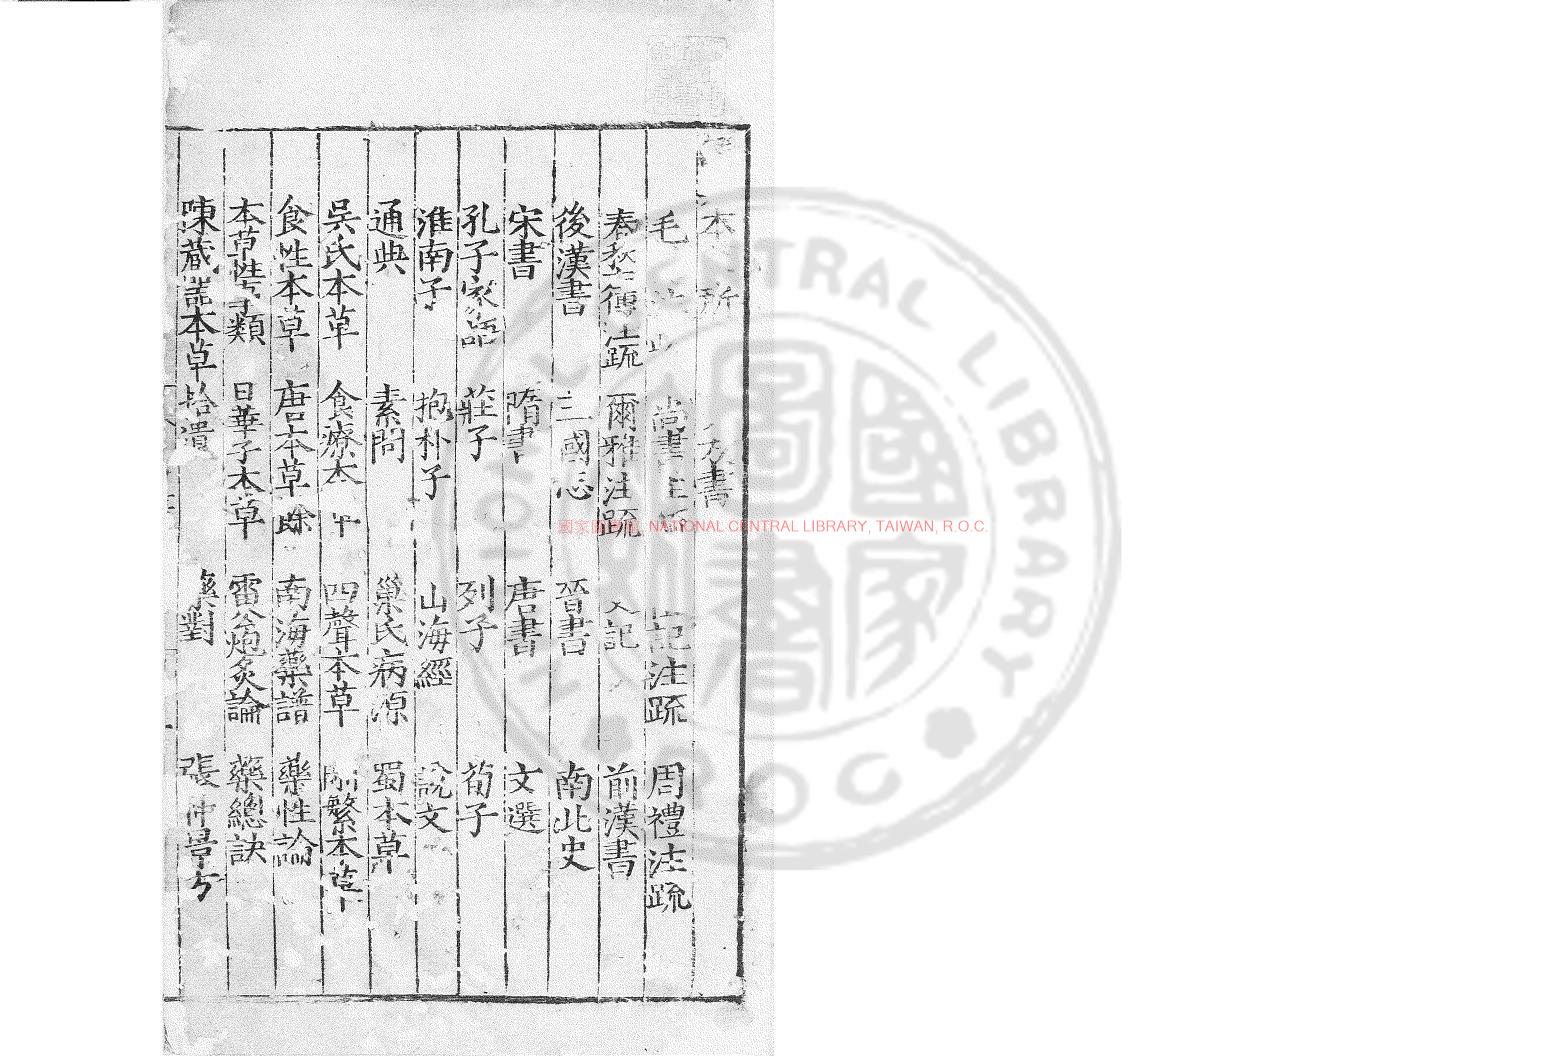 本 所 方書
毛 尚書注疏 記注疏 周禮注疏
春秋傳注疏 爾雅注疏 史記 前漢書
後漢書 三國志 晉書 南北史
宋書 隋書 唐書 文選
孔子家語 莊子 列子 荀子
淮南子 抱朴子 山海經 說文
通典 素問 巢氏病源 蜀本草
吳氏本草 食療本草 四聲本草 刪繁本草
食性本草 唐本草餘 南海藥譜 藥性論
本草性事類 日華子本草 雷公炮炙論 藥總訣
陳藏器本草拾遺 藥對 張仲景方
國家圖書館, NATIONAL CENTRAL LIBRARY, TAIWAN, R.O.C.
NATIONAL CENTRAL LIBRARY
國家圖書
ROC